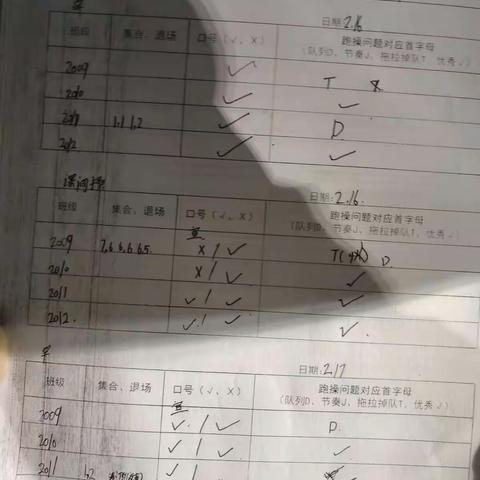 早
日期:2.16
班级 集合、退场 口号(√、X) 跑操问题对应首字母
(队列D、节奏J、拖拉掉队T、优秀√)
2009 √ T
2010 √ √
2011 1,1 1,2 √ D
2012 √ √
课间操
日期:2.16.
班级 集合、退场 口号(√、X) 跑操问题对应首字母
(队列D、节奏J、拖拉掉队T、优秀√)
2009 7,6,6,6,6.5. X / √ D.
2010 X / √ √
2011 √ / √ √
2012. √ / √ √.
早
日期:2.17
班级 集合、退场 口号(√、X) 跑操问题对应首字母
(队列D、节奏J、拖拉掉队T、优秀√)
2009 √ / √ D.
2010 √ / √ √
2011 √ /